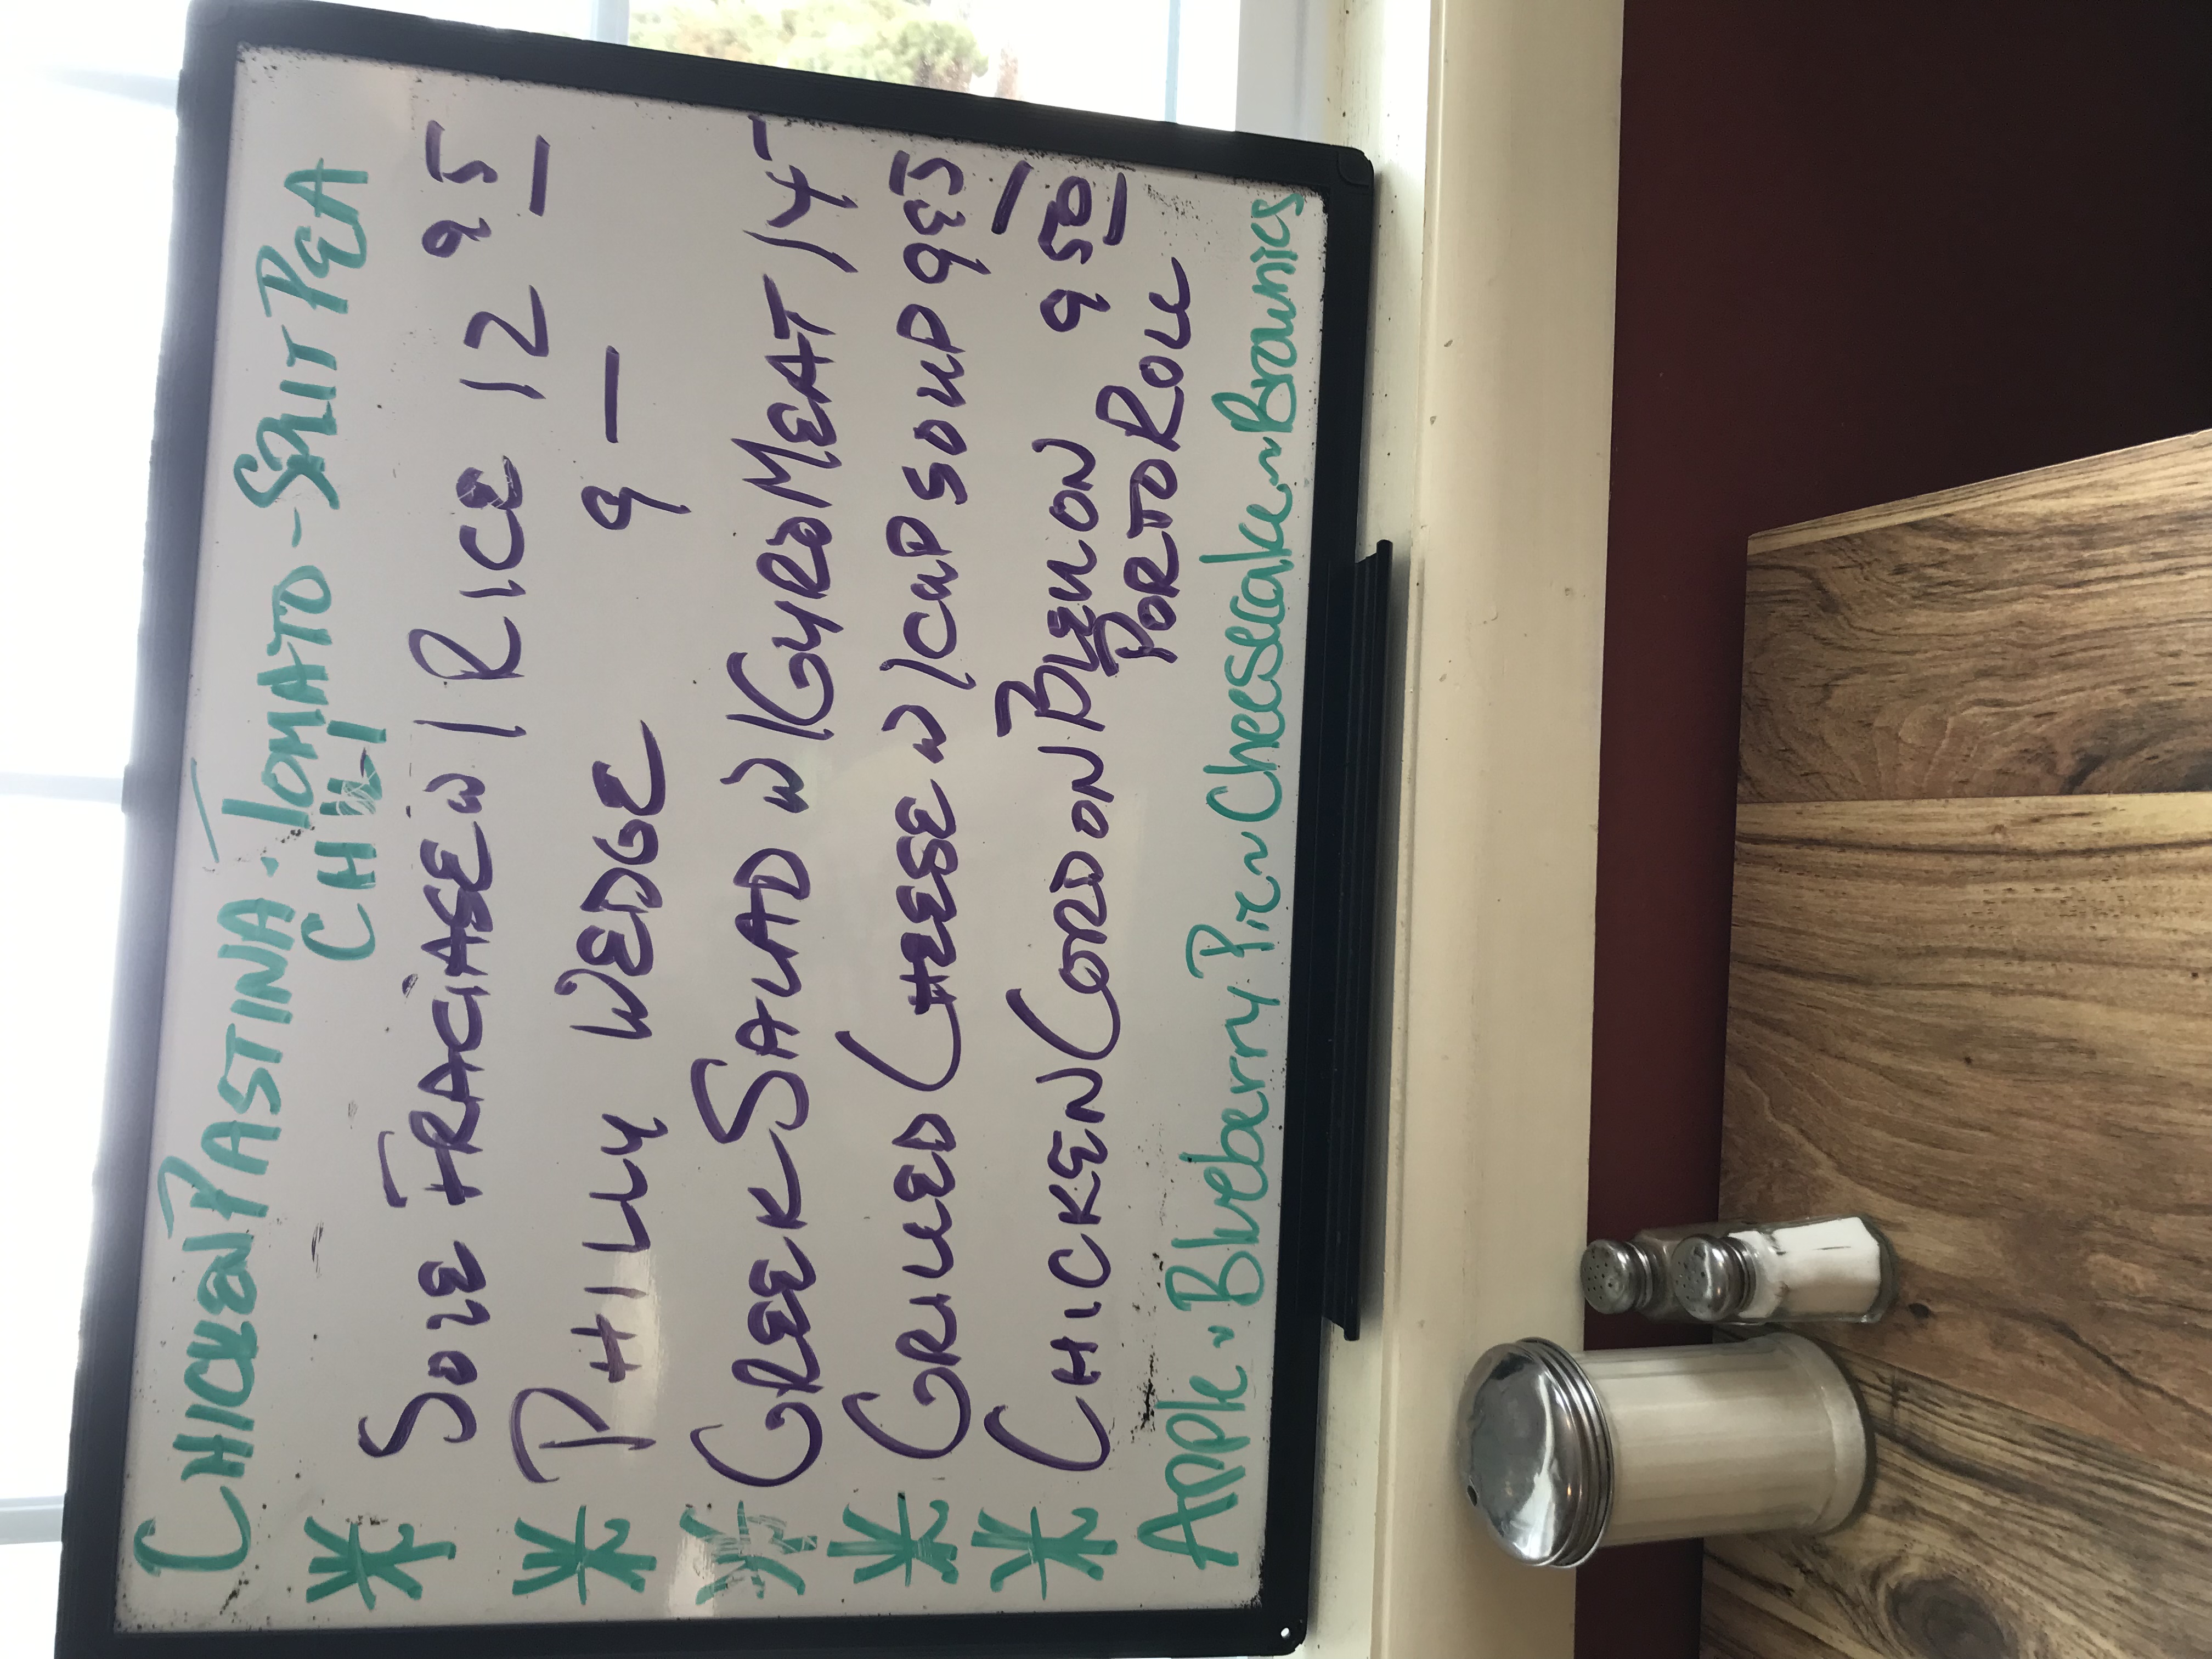 CHICKEN PASTINA · TOMATO - SPLIT PEA
CHILI
* SOLE FRACIASE W/ RICE 12 95
* PHILLY WEDGE 9 —
* GREEK SALAD W/ GYRO MEAT 14-
* GRILLED CHEESE W/ CUP SOUP 9 95
* CHICKEN CORDON BLEU ON 9 50
PORTO ROLL
Apple ~ Blueberry Pie ~ Cheesecake ~ Brownies